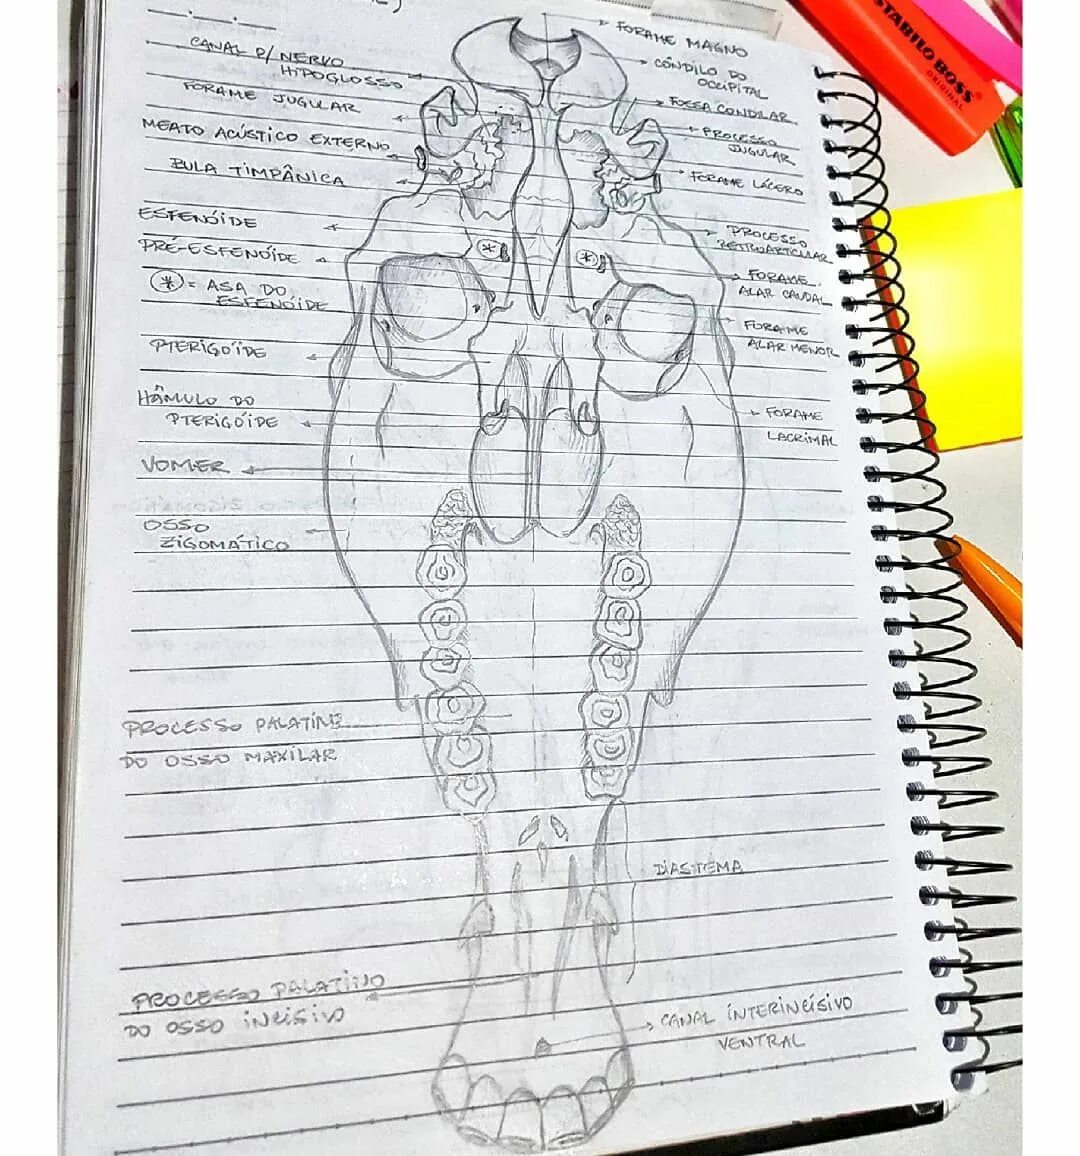 FORAME MAGNO
CANAL P/ NERVO
HIPOGLOSSO
FORAME JUGULAR
MEATO ACÚSTICO EXTERNO
BULA TIMPÂNICA
ESFENÓIDE
PRÉ-ESFENÓIDE
* = ASA DO
ESFENÓIDE
PTERIGÓIDE
HÂMULO DO
PTERIGÓIDE
VOMER
OSSO
ZIGOMÁTICO
PROCESSO PALATINE
DO OSSO MAXILAR
PROCESSO PALATINO
DO OSSO INCISIVO
CÔNDILO DO
OCCIPITAL
FOSSA CONDILAR
PROCESSO
JUGULAR
FORAME LÁCERO
PROCESSO
RETROARTICULAR
FORAME
ALAR CAUDAL
FORAME
ALAR MENOR
FORAME
LACRIMAL
*
*
DIASTEMA
CANAL INTERINCISIVO
VENTRAL
STABILO BOSS
ORIGINAL